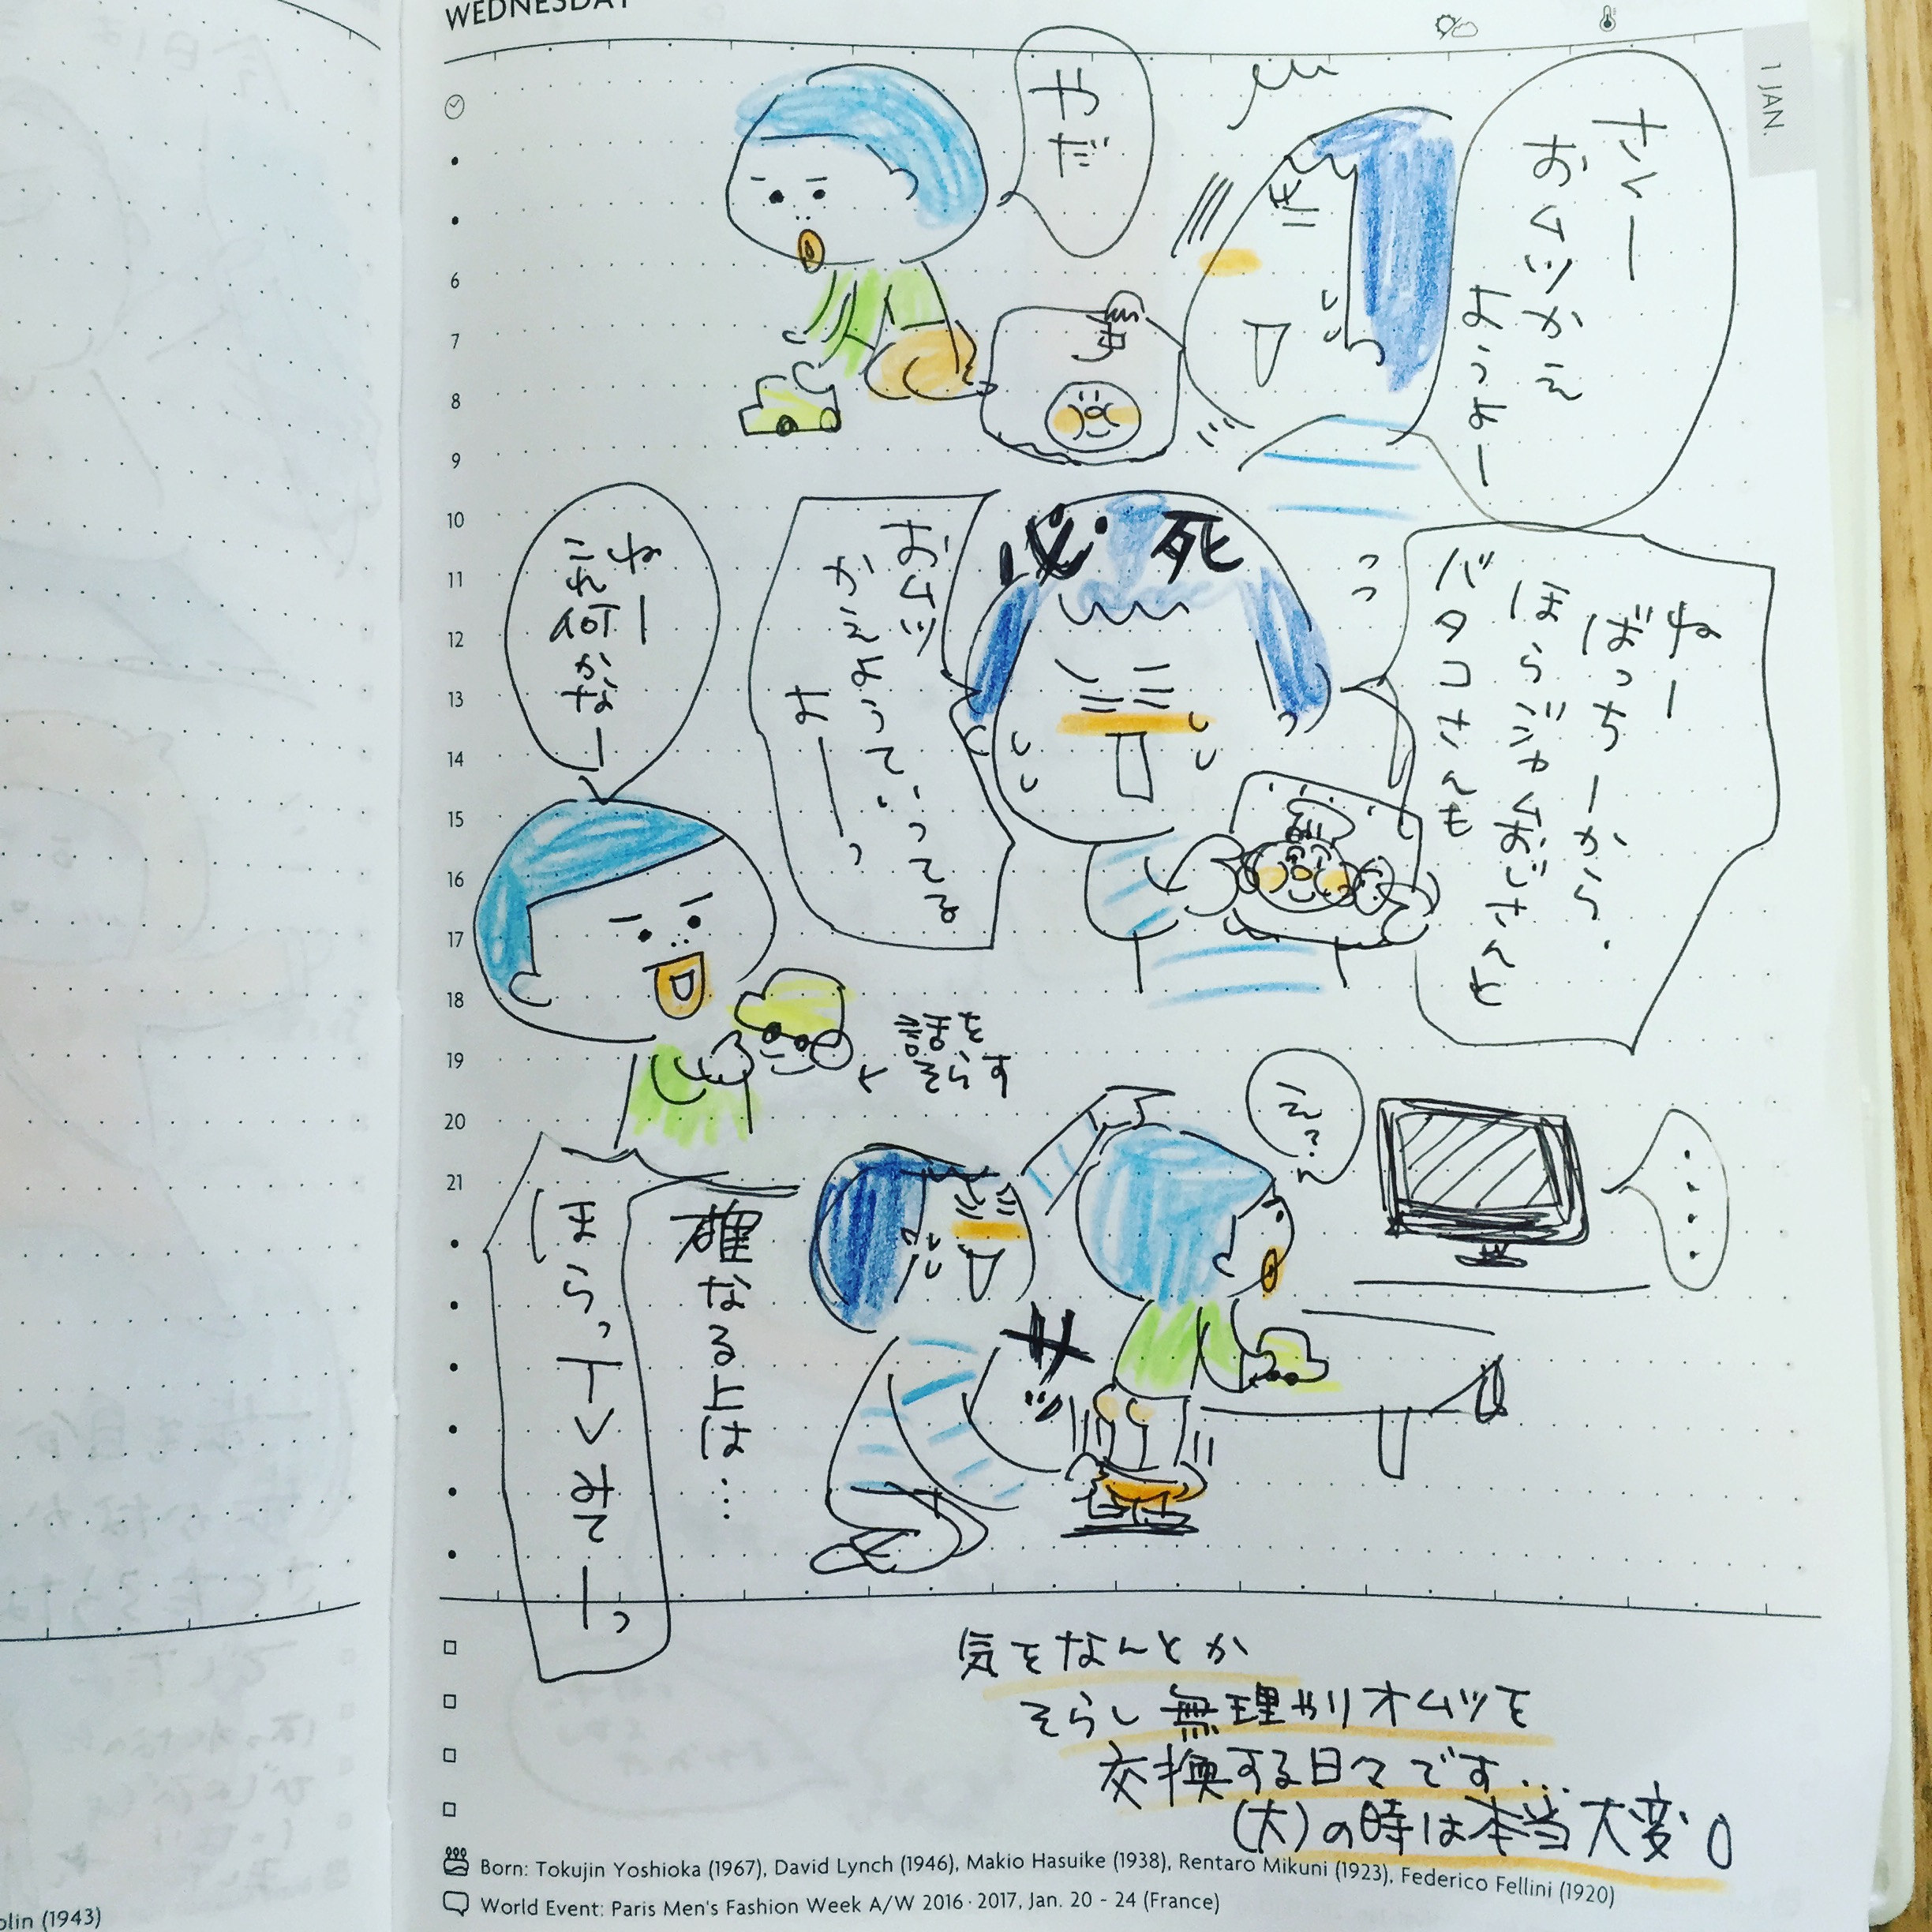 WEDNESDAY
1 JAN
さくー
おムツかえ
ようよー
やだ
ねー
ばっちーから.
ほらジャムおじさんと
バタコさんも
必死
おムツ
かえようていってる
よーっ
ねー
これ何かなー
話を
そらす
えっ
確なる上は…
ほらっTVみてーっ
サッ
....
6
7
8
9
10
11
12
13
14
15
16
17
18
19
20
21
気をなんとか
そらし無理やりオムツを
交換する日々です…
(大)の時は本当大変
Born: Tokujin Yoshioka (1967), David Lynch (1946), Makio Hasuike (1938), Rentaro Mikuni (1923), Federico Fellini (1920)
World Event: Paris Men's Fashion Week A/W 2016 - 2017, Jan. 20 - 24 (France)
(1943)